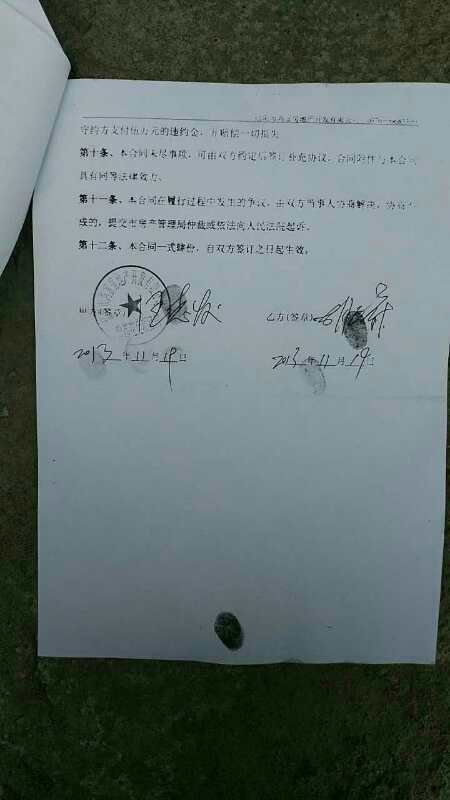 守约方支付伍万元的违约金，并赔偿一切损失
第十条、本合同未尽事项，可由双方约定后签订补充协议，合同附件与本合同
具有同等法律效力。
第十一条、本合同在履行过程中发生的争议，由双方当事人协商解决，协商不
成的，提交市房产管理局仲裁或依法向人民法院起诉。
第十二条、本合同一式肆份，自双方签订之日起生效。
甲方(签章)
乙方(签章)
2013年11月19日
2013年11月19日